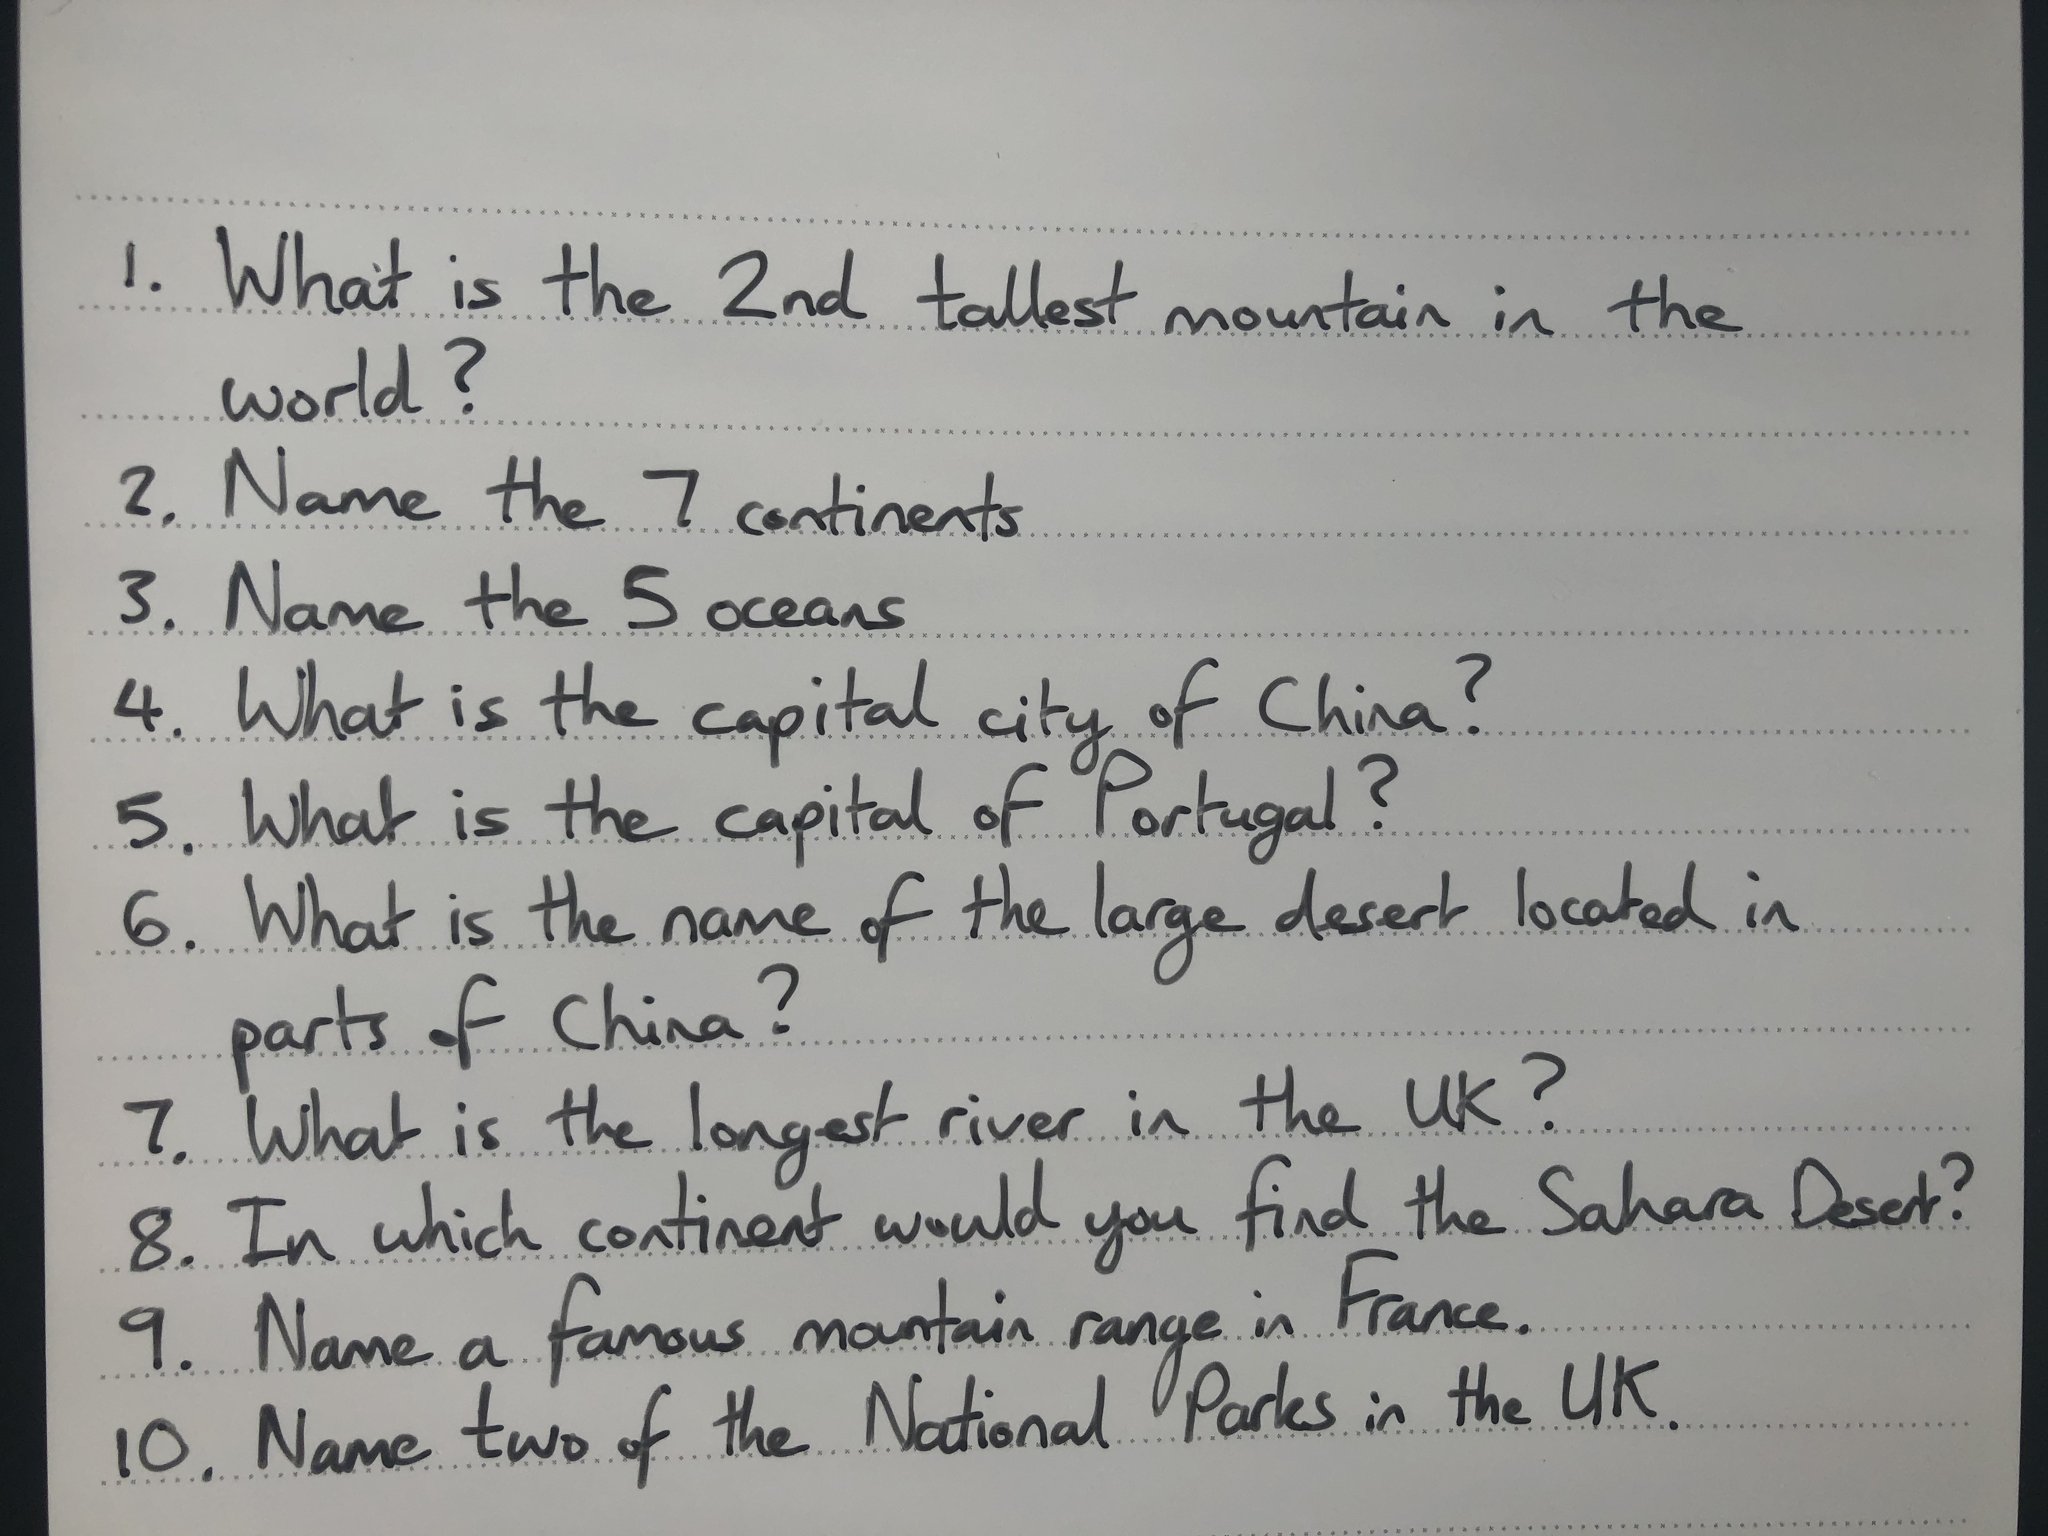 1. What is the 2nd tallest mountain in the
world?
2. Name the 7 continents
3. Name the 5 oceans
4. What is the capital city of China?
5. What is the capital of Portugal?
6. What is the name of the large desert located in
parts of China?
7. What is the longest river in the UK?
8. In which continent would you find the Sahara Desert?
9. Name a famous mountain range in France.
10. Name two of the National Parks in the UK.